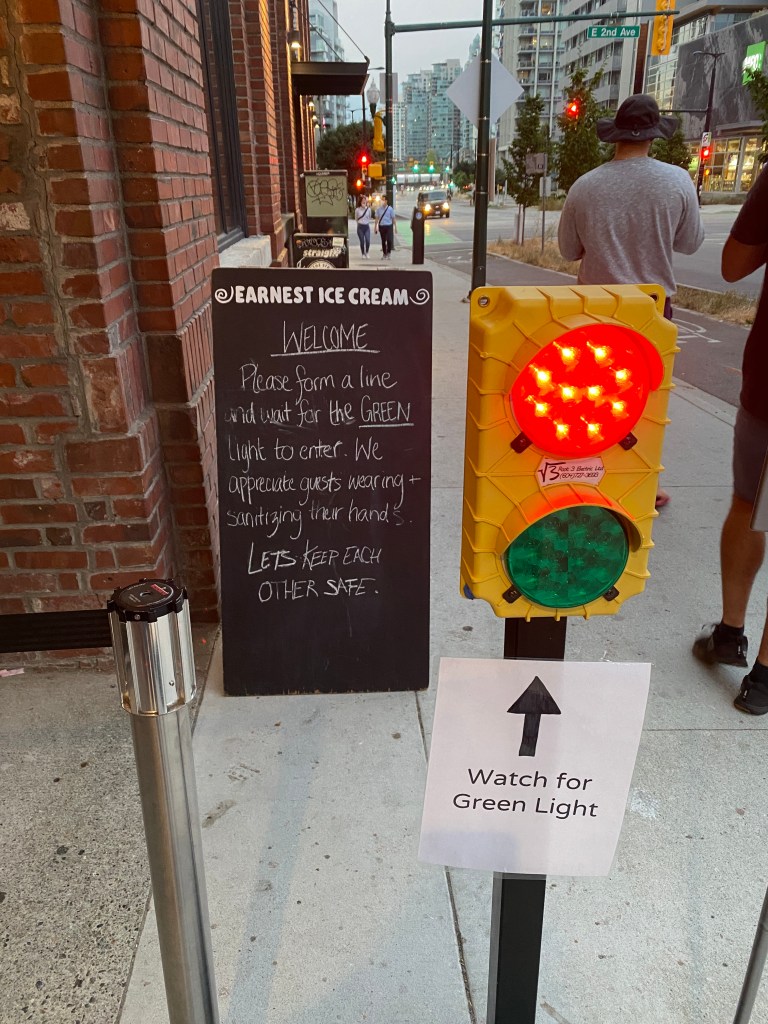 E 2nd AVE
EARNEST ICE CREAM
WELCOME
Please form a line
and wait for the GREEN
light to enter. We
appreciate guests wearing +
sanitizing their hands.
LETS KEEP EACH
OTHER SAFE.
√3
Watch for
Green Light